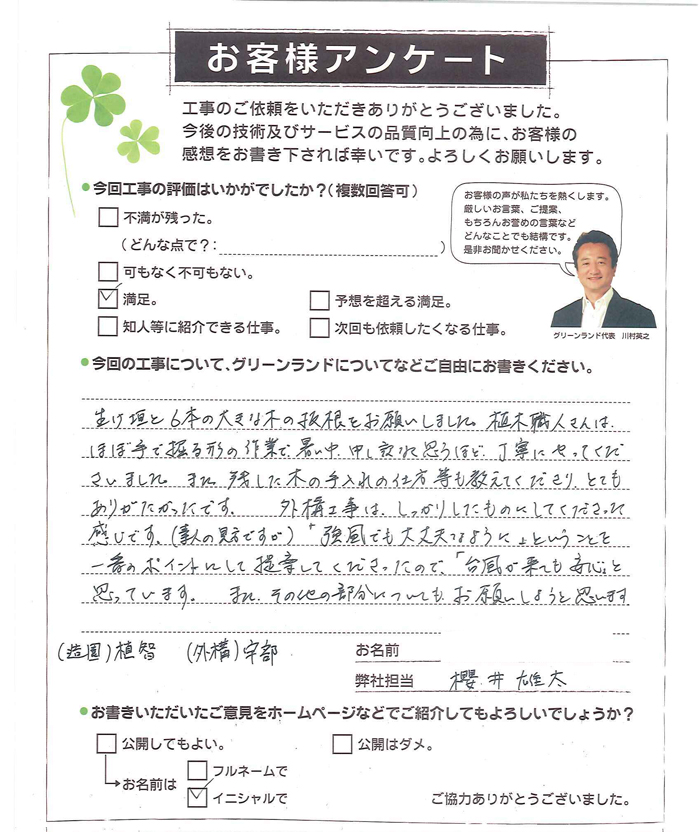 お客様アンケート
工事のご依頼をいただきありがとうございました。
今後の技術及びサービスの品質向上の為に、お客様の
感想をお書き下されば幸いです。よろしくお願いします。
●今回工事の評価はいかがでしたか？（複数回答可）
不満が残った。
（どんな点で？：）
可もなく不可もない。
満足。
予想を超える満足。
知人等に紹介できる仕事。
次回も依頼したくなる仕事。
お客様の声が私たちを熱くします。
厳しいお言葉、ご提案、
もちろんお誉めの言葉など
どんなことでも結構です。
是非お聞かせください。
グリーンランド代表 川村英之
●今回の工事について、グリーンランドについてなどご自由にお書きください。
生け垣と6本の大きな木の抜根をお願いしました。植木職人さんは、
ほぼ手で掘る形の作業で、暑い中、申し訳なく思うほど、丁寧にやってくだ
さいました。また、残した木の手入れの仕方等も教えてくださり、とても
ありがたかったです。 外構工事は、しっかりしたものにしてくださった
感じです。(素人の見方ですが)「強風でも大丈夫なように」ということを
一番のポイントにして提案してくださったので、「台風が来ても安心」と
思っています。 また、その他の部分についても、お願いしようと思います
(造園)植智 (外構)宇部
お名前
弊社担当 櫻井 雄太
●お書きいただいたご意見をホームページなどでご紹介してもよろしいでしょうか？
公開してもよい。
公開はダメ。
お名前は
フルネームで
イニシャルで
ご協力ありがとうございました。